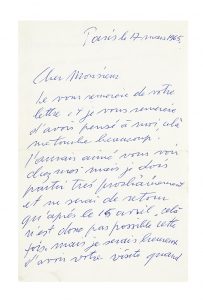 Paris le 17 mars 1965
Cher Monsieur
Je vous remercie de votre
lettre et je vous remercie
d'avoir pensé à moi, cela
me touche beaucoup.
J'aurais aimé vous voir
chez moi mais je dois
partir très prochainement
et ne serai de retour
qu'après le 15 avril, cela
n'est donc pas possible cette
fois, mais je serais heureux
d'avoir votre visite quand